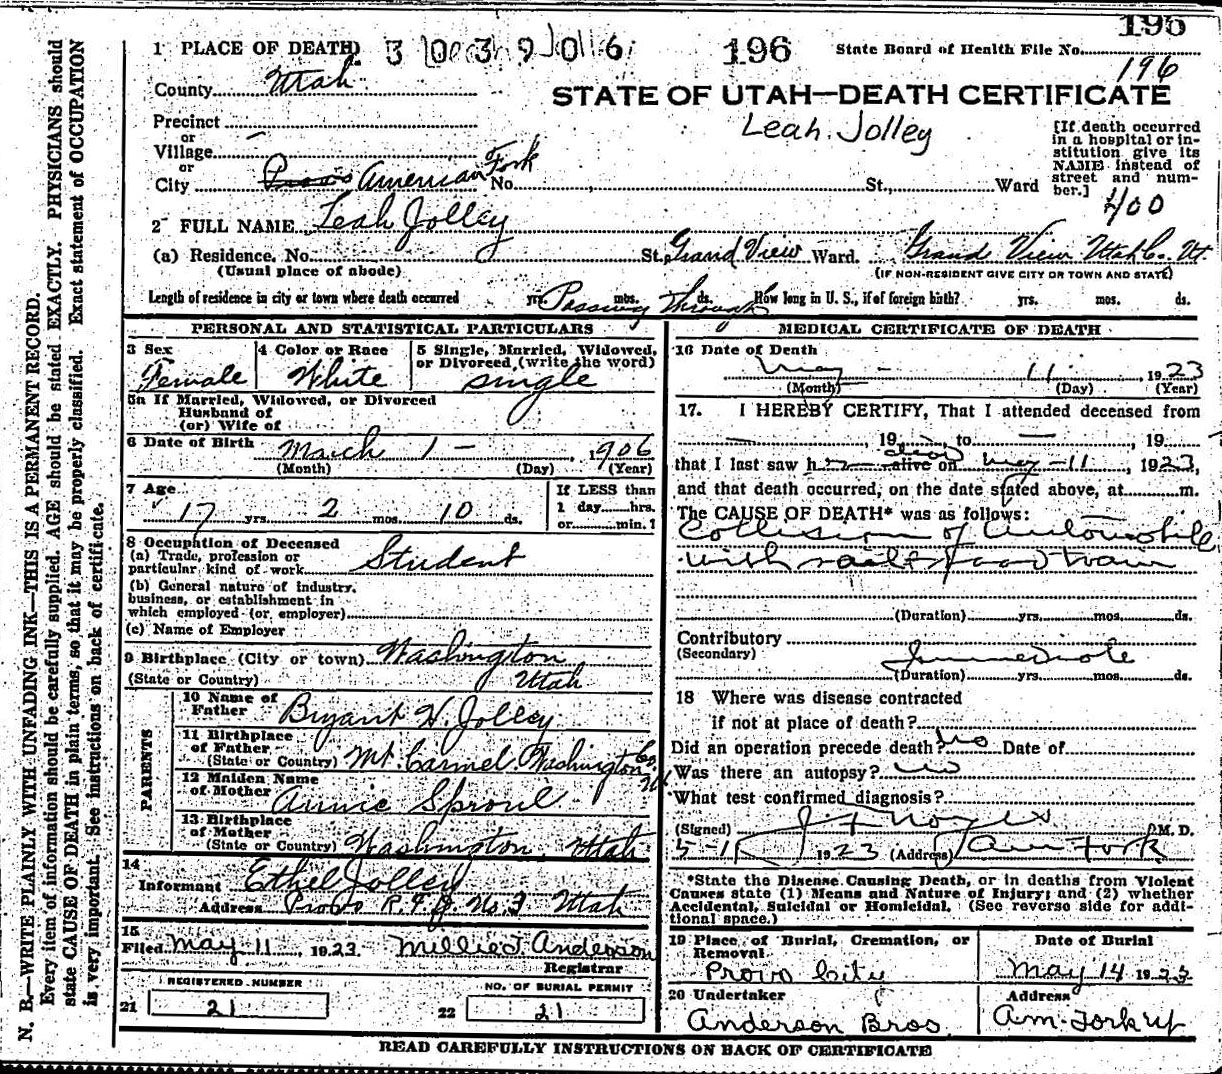 196
1 PLACE OF DEATH 3 0 3 9 0 6 196 State Board of Health File No.
County Utah 196
STATE OF UTAH—DEATH CERTIFICATE
Precinct
or
Village
or
City Provo American Fork No. St., Ward
Leah Jolley
[If death occurred
in a hospital or in-
stitution give its
NAME instead of
street and num-
ber.]
400
2 FULL NAME Leah Jolley
(a) Residence. No. St. Grand View Ward. Grand View Utah Co. Ut.
(Usual place of abode) (IF NON-RESIDENT GIVE CITY OR TOWN AND STATE)
Length of residence in city or town where death occurred yrs. mos. ds. Passing Through How long in U. S., if of foreign birth? yrs. mos. ds.
PERSONAL AND STATISTICAL PARTICULARS
3 Sex 4 Color or Race 5 Single, Married, Widowed,
or Divorced (write the word)
Female White single
5a If Married, Widowed, or Divorced
Husband of
(or) Wife of
6 Date of Birth March 1 — , 1906
(Month) (Day) (Year)
7 Age If LESS than
17 yrs. 2 mos. 10 ds. 1 day hrs.
or min.
8 Occupation of Deceased
(a) Trade, profession or
particular kind of work Student
(b) General nature of industry,
business, or establishment in
which employed (or employer)
(c) Name of Employer
9 Birthplace (City or town) Washington
(State or Country) Utah
PARENTS
10 Name of
Father Bryant H. Jolley
11 Birthplace
of Father
(State or Country) Mt. Carmel Washington Co.
12 Maiden Name
of Mother Annie Sproul
13 Birthplace
of Mother
(State or Country) Washington, Utah
14
Informant Ethel Jolley
Address Provo R.F.D. No. 3 Utah
15
Filed May 11, 1923. Millie J. Anderson
Registrar
REGISTERED NUMBER NO. OF BURIAL PERMIT
21 21 22 21
MEDICAL CERTIFICATE OF DEATH
16 Date of Death
May - 11 , 1923
(Month) (Day) (Year)
17. I HEREBY CERTIFY, That I attended deceased from
— , 19 , to — , 19
that I last saw h er dead alive on May -11 , 1923,
and that death occurred, on the date stated above, at m.
The CAUSE OF DEATH* was as follows:
Collision of Automobile
with railroad train
(Duration) yrs. mos. ds.
Contributory
(Secondary) Immediate
(Duration) yrs. mos. ds.
18 Where was disease contracted
if not at place of death?
Did an operation precede death? no Date of
Was there an autopsy? no
What test confirmed diagnosis?
(Signed) M. D.
1923 (Address) Am Fork
*State the Disease Causing Death, or in deaths from Violent
Causes state (1) Means and Nature of Injury; and (2) whether
Accidental, Suicidal or Homicidal. (See reverse side for addi-
tional space.)
19 Place of Burial, Cremation, or Date of Burial
Removal
Provo City May 14 1923
20 Undertaker Address
Anderson Bros. Am. Fork Ut
READ CAREFULLY INSTRUCTIONS ON BACK OF CERTIFICATE
N. B.—WRITE PLAINLY WITH UNFADING INK—THIS IS A PERMANENT RECORD.
Every item of information should be carefully supplied. AGE should be stated EXACTLY. PHYSICIANS should
state CAUSE OF DEATH in plain terms, so that it may be properly classified. Exact statement of OCCUPATION
is very important. See instructions on back of certificate.